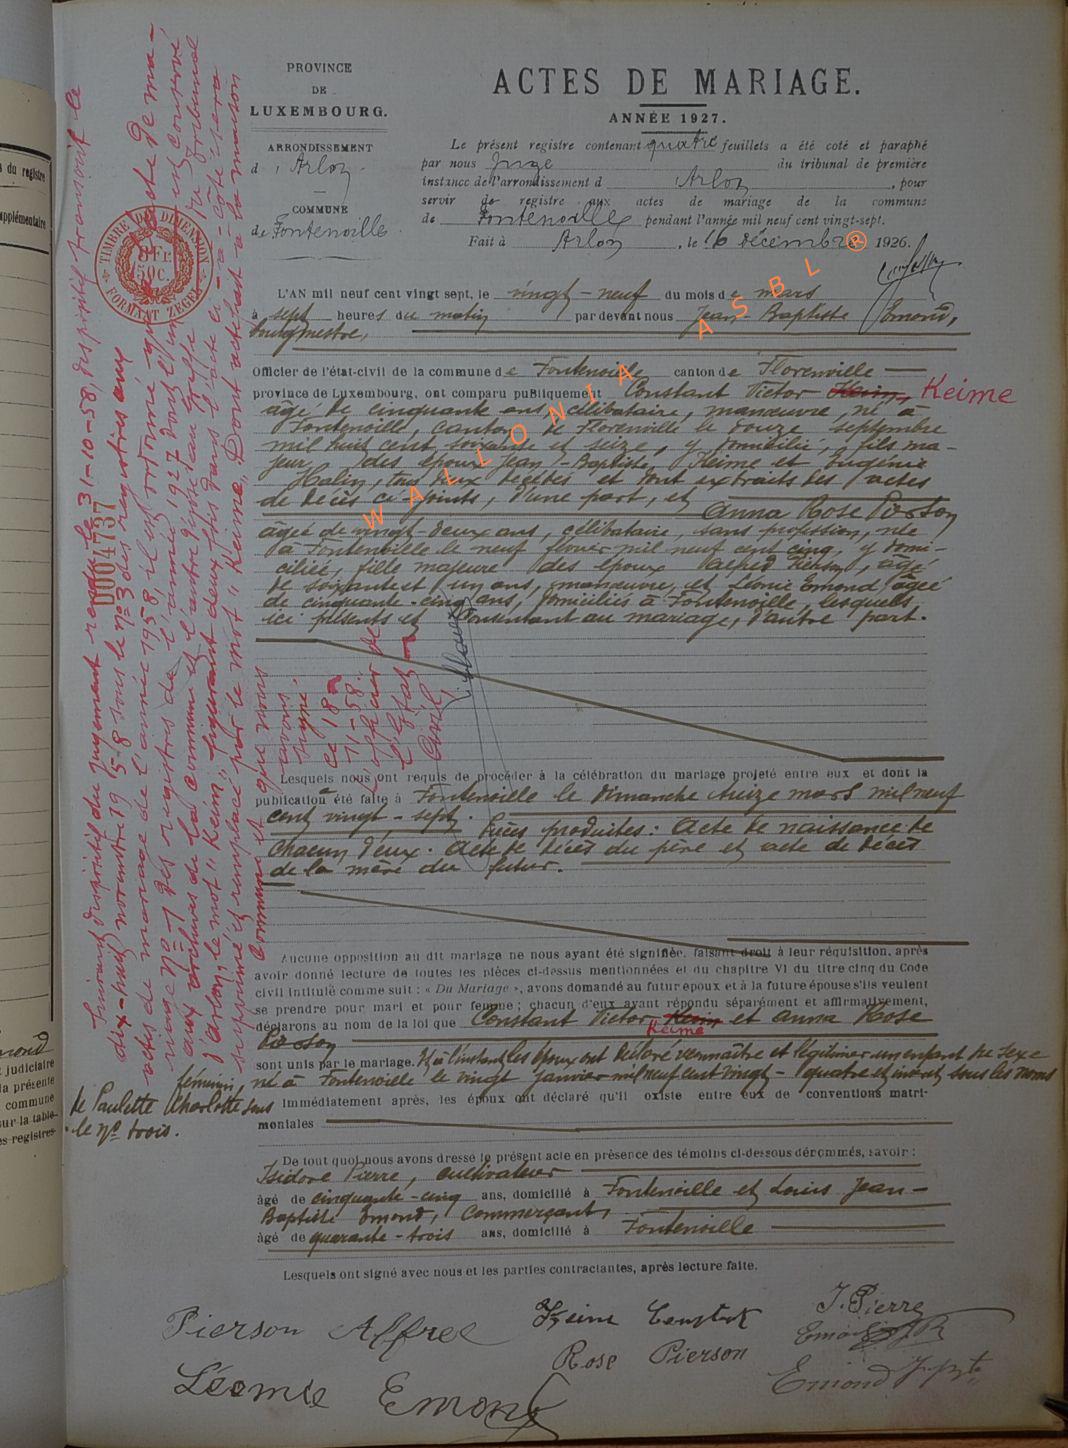 PROVINCE
DE
LUXEMBOURG.
ARRONDISSEMENT
d' Arlon
COMMUNE
de Fontenoille
ACTES DE MARIAGE.
ANNÉE 1927.
Le présent registre contenant quatre feuillets a été coté et paraphé
par nous Juge du tribunal de première
instance de l'arrondissement d Arlon, pour
servir de registre aux actes de mariage de la commune
de Fontenoille pendant l'année mil neuf cent vingt-sept.
Fait à Arlon, le 16 Décembre 1926.
TIMBRE DE DIMENSION
8 Fr.
50C.
0004737
WALLONIA ASBL ®
L'AN mil neuf cent vingt sept, le vingt-neuf du mois de mars
à sept heures du matin par devant nous Jean-Baptiste Emond,
bourgmestre,
Officier de l'état-civil de la commune de Fontenoille canton de Florenville
province de Luxembourg, ont comparu publiquement Constant Victor Keim, Keime
âgé de cinquante ans, célibataire, manœuvre, né à
Fontenoille, canton de Florenville le douze septembre
mil huit cent soixante et seize, y domicilié, fils ma-
jeur des époux Jean-Baptiste Keime et Eugénie
Halin, tous deux décédés et dont extraits des actes
de décès ci-joints, d'une part, et
Anna Rose Pierson
âgée de vingt-deux ans, célibataire, sans profession, née
à Fontenoille le neuf février mil neuf cent cinq, y domi-
ciliée, fille majeure des époux Alfred Pierson, âgé
de soixante et un ans, manœuvre, et Léonie Emond, âgée
de cinquante-cinq ans, domiciliés à Fontenoille, lesquels
ici présents et consentant au mariage, d'autre part.
Lesquels nous ont requis de procéder à la célébration du mariage projeté entre eux et dont la
publication a été faite à Fontenoille le dimanche treize mars mil neuf
cent vingt-sept. Pièces produites: Acte de naissance de
chacun d'eux. Acte de décès du père et acte de décès
de la mère du futur.
Aucune opposition au dit mariage ne nous ayant été signifiée, faisant droit à leur réquisition, après
avoir donné lecture de toutes les pièces ci-dessus mentionnées et du chapitre VI du titre cinq du Code
civil intitulé comme suit : « Du Mariage », avons demandé au futur époux et à la future épouse s'ils veulent
se prendre pour mari et pour femme ; chacun d'eux ayant répondu séparément et affirmativement,
déclarons au nom de la loi que Constant Victor Keim Keime et Anna Rose
Pierson
sont unis par le mariage. Et à l'instant les époux ont déclaré reconnaître et légitimer un enfant de sexe
féminin, né à Fontenoille le vingt janvier mil neuf cent vingt-quatre et inscrit sous les noms
de Paulette Charlotte sous
le n° trois.
Immédiatement après, les époux ont déclaré qu'il existe entre eux de conventions matri-
moniales
De tout quoi nous avons dressé le présent acte en présence des témoins ci-dessous dénommés, savoir :
Isidore Pierre, cultivateur
âgé de cinquante-cinq ans, domicilié à Fontenoille et Louis Jean-
Baptiste Emond, commerçant,
âgé de quarante-trois ans, domicilié à Fontenoille
Lesquels ont signé avec nous et les parties contractantes, après lecture faite.
Pierson Alfred
Keime Constant
J. Pierre
Rose Pierson
Léonie Emond
Suivant dispositif du jugement rendu le 31-10-58, dispositif transcrit le
dix-huit novembre 1958 sous le n° 3 des registres aux
actes de mariage de l'année 1958, il est ordonné que l'acte de ma-
riage n° 1 des registres de l'année 1927 dont l'un est conservé
aux archives de la commune et l'autre au greffe du Tribunal
d'Arlon, le mot "Keim" figurant deux fois dans l'acte ci-à-côté sera
supprimé et remplacé par le mot "Keime". Dont acte
que nous
avons
signé
ce 18-
11-58.
L'officier de
l'Etat
Civil
du registre
supplémentaire
judiciaire
la présente
commune
sur la table
es registres